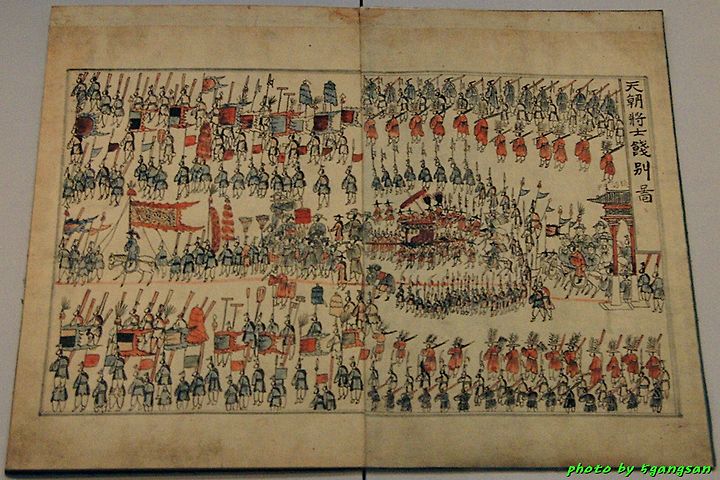 天朝將士餞別圖
photo by 5gangsan